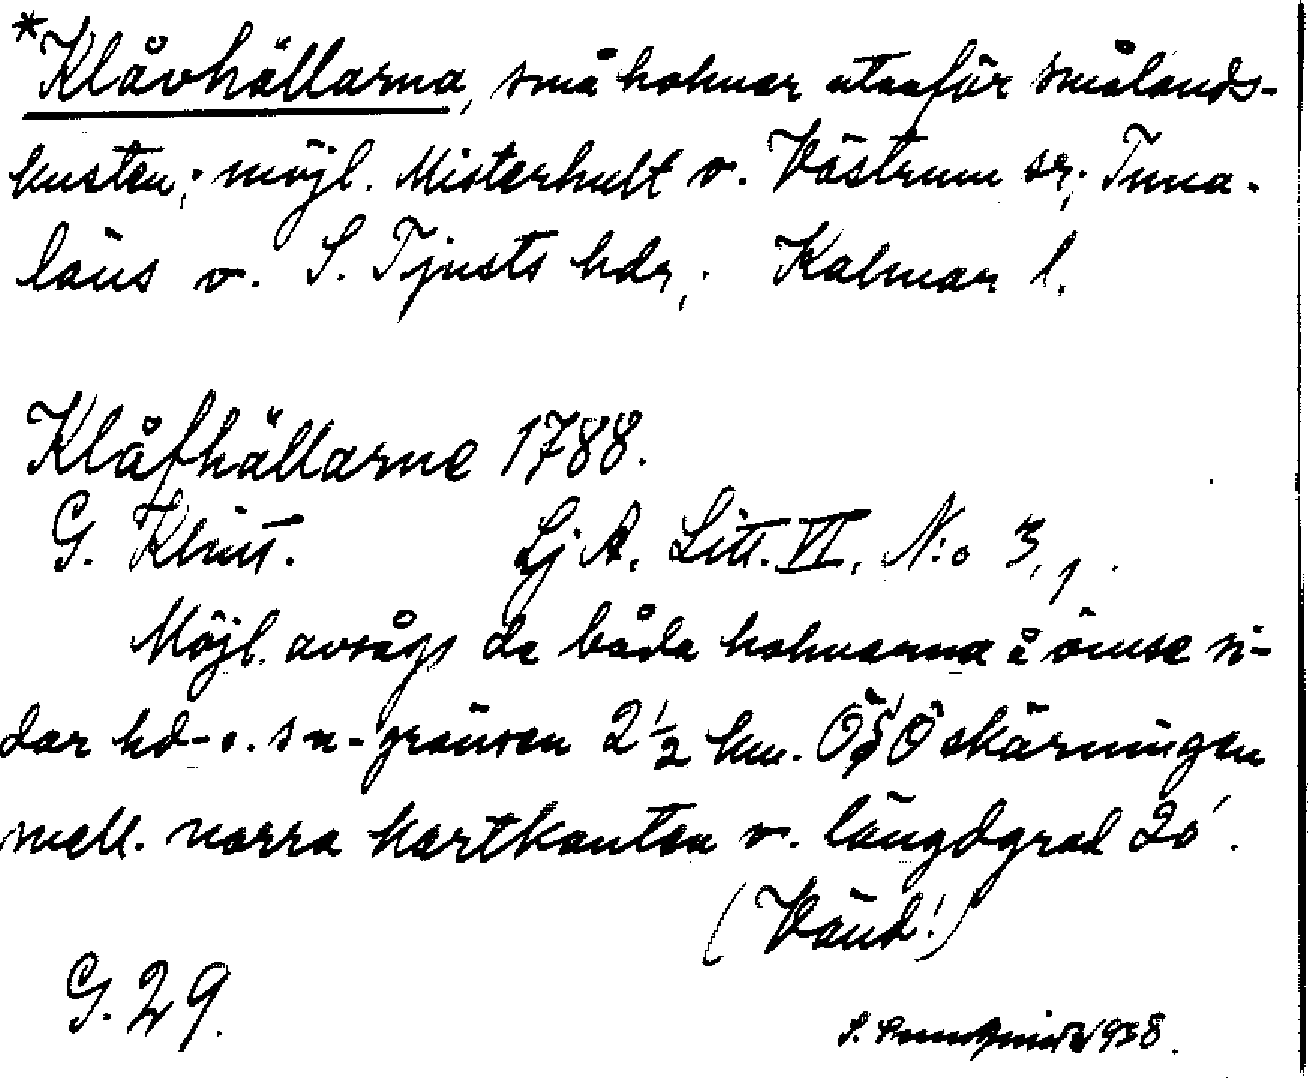 *Klåvhällarna, små holmar utanför smålands-
kusten; möjl. Misterhult o. Västrum sr; Tuna-
läns o. S. Tjusts hdr; Kalmar l.
Klåfhällarne 1788.
G. Klint. Sj A. Litt. VI, N:o 3, 1.
Möjl. avsågs de båda holmarna å ömse si-
dor hd- o. sn-gränsen 2½ km. ÖSÖ skärningen
mell. norra kartkanten o. längdgrad 20'.
(Vänd!)
G. 29.
1938.